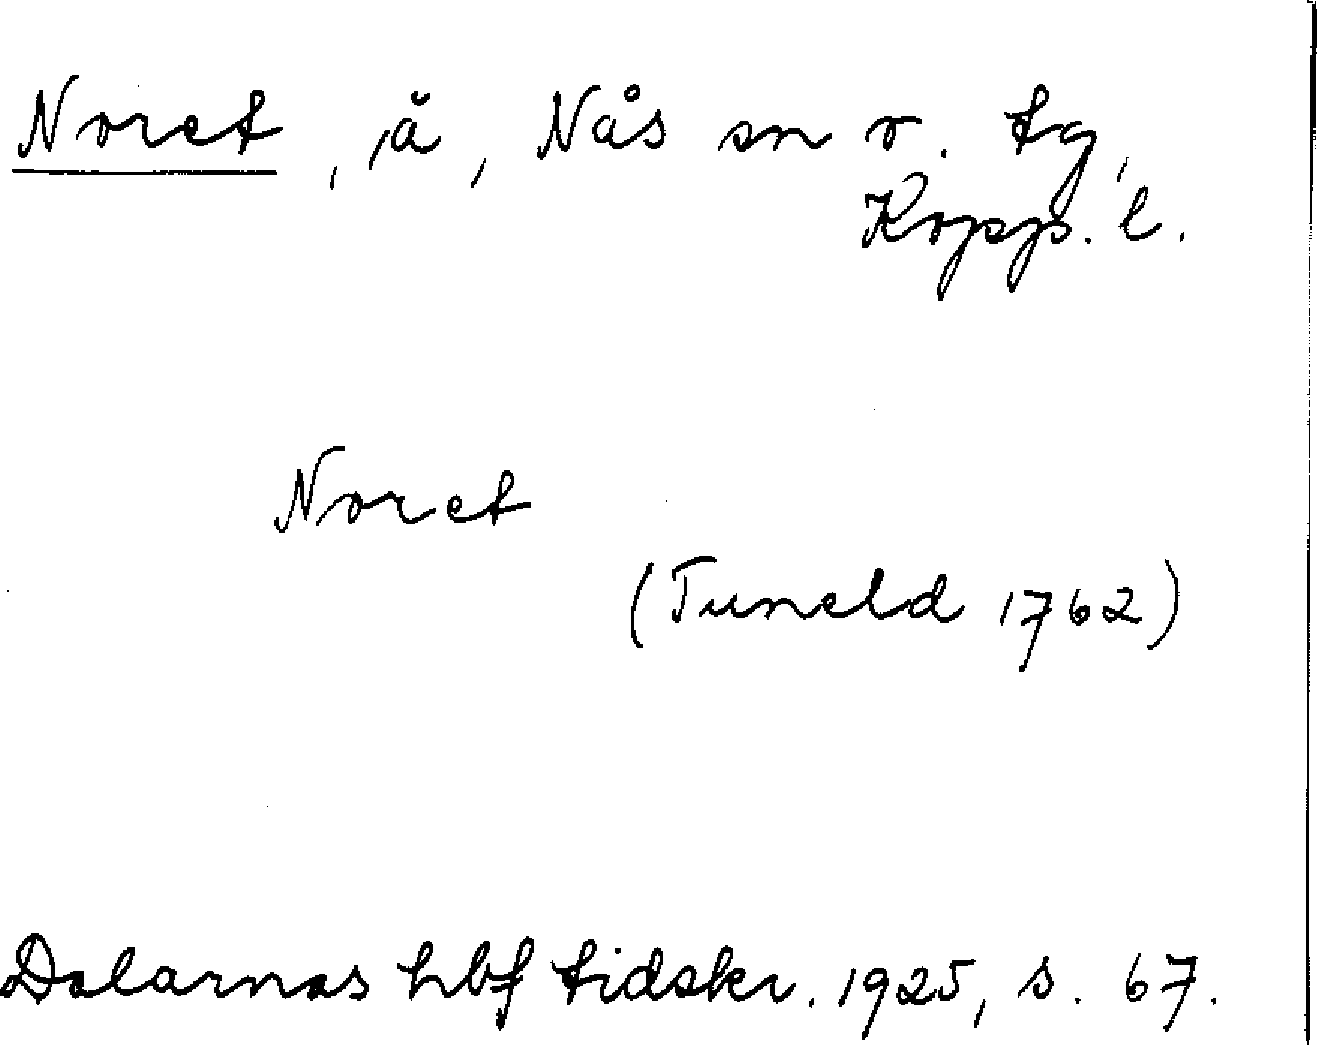 Noret, å, Nås sn o. tg,
Kopp. l.
Noret
(Tuneld 1762)
Dalarnas hbf tidskr. 1925, s. 67.